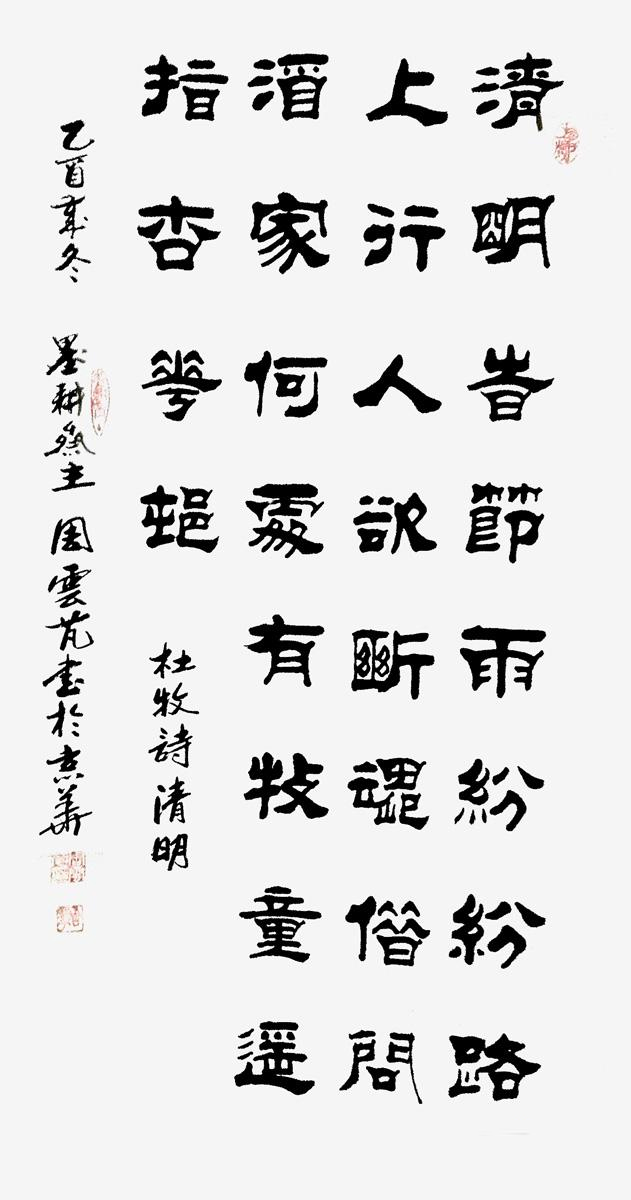 清明旹節雨紛紛路
上行人欲斷魂借問
酒家何處有牧童遙
指杏花邨 杜牧詩清明
乙酉歲冬 墨耕齋主 周雲芃書於京華